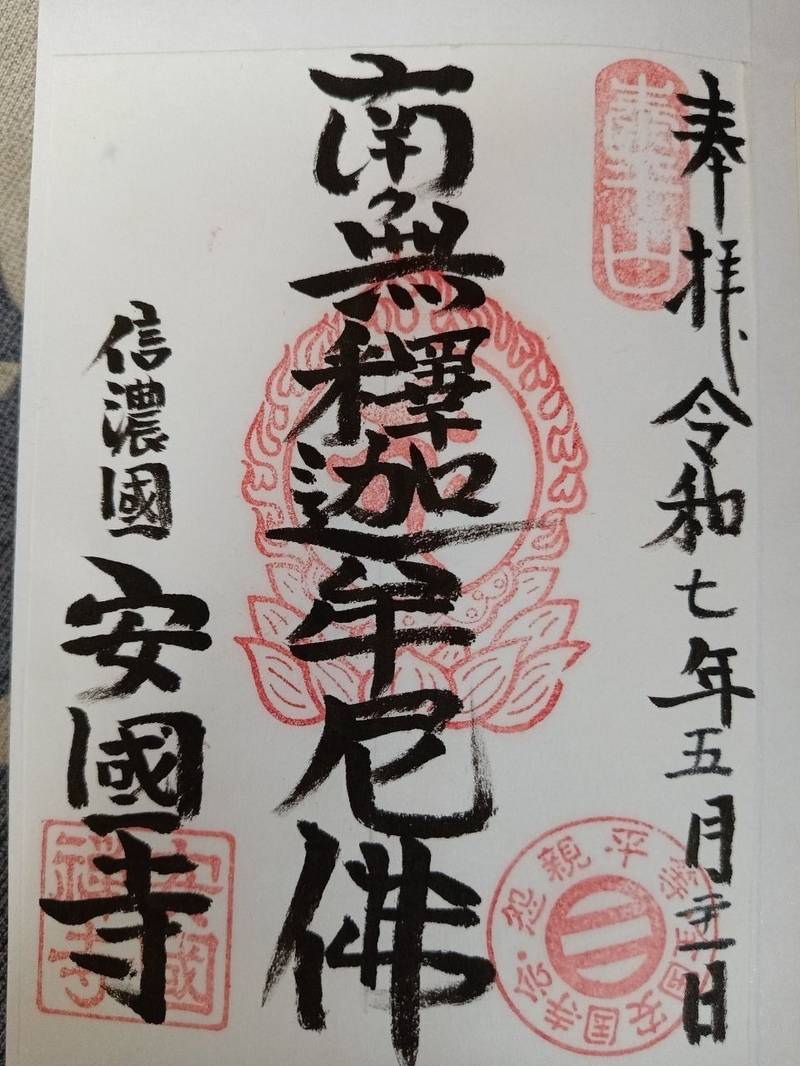 奉拝 令和七年五月 日
南無釋迦牟尼佛
信濃國 安國寺
安國禅寺
怨親平等
安国寺